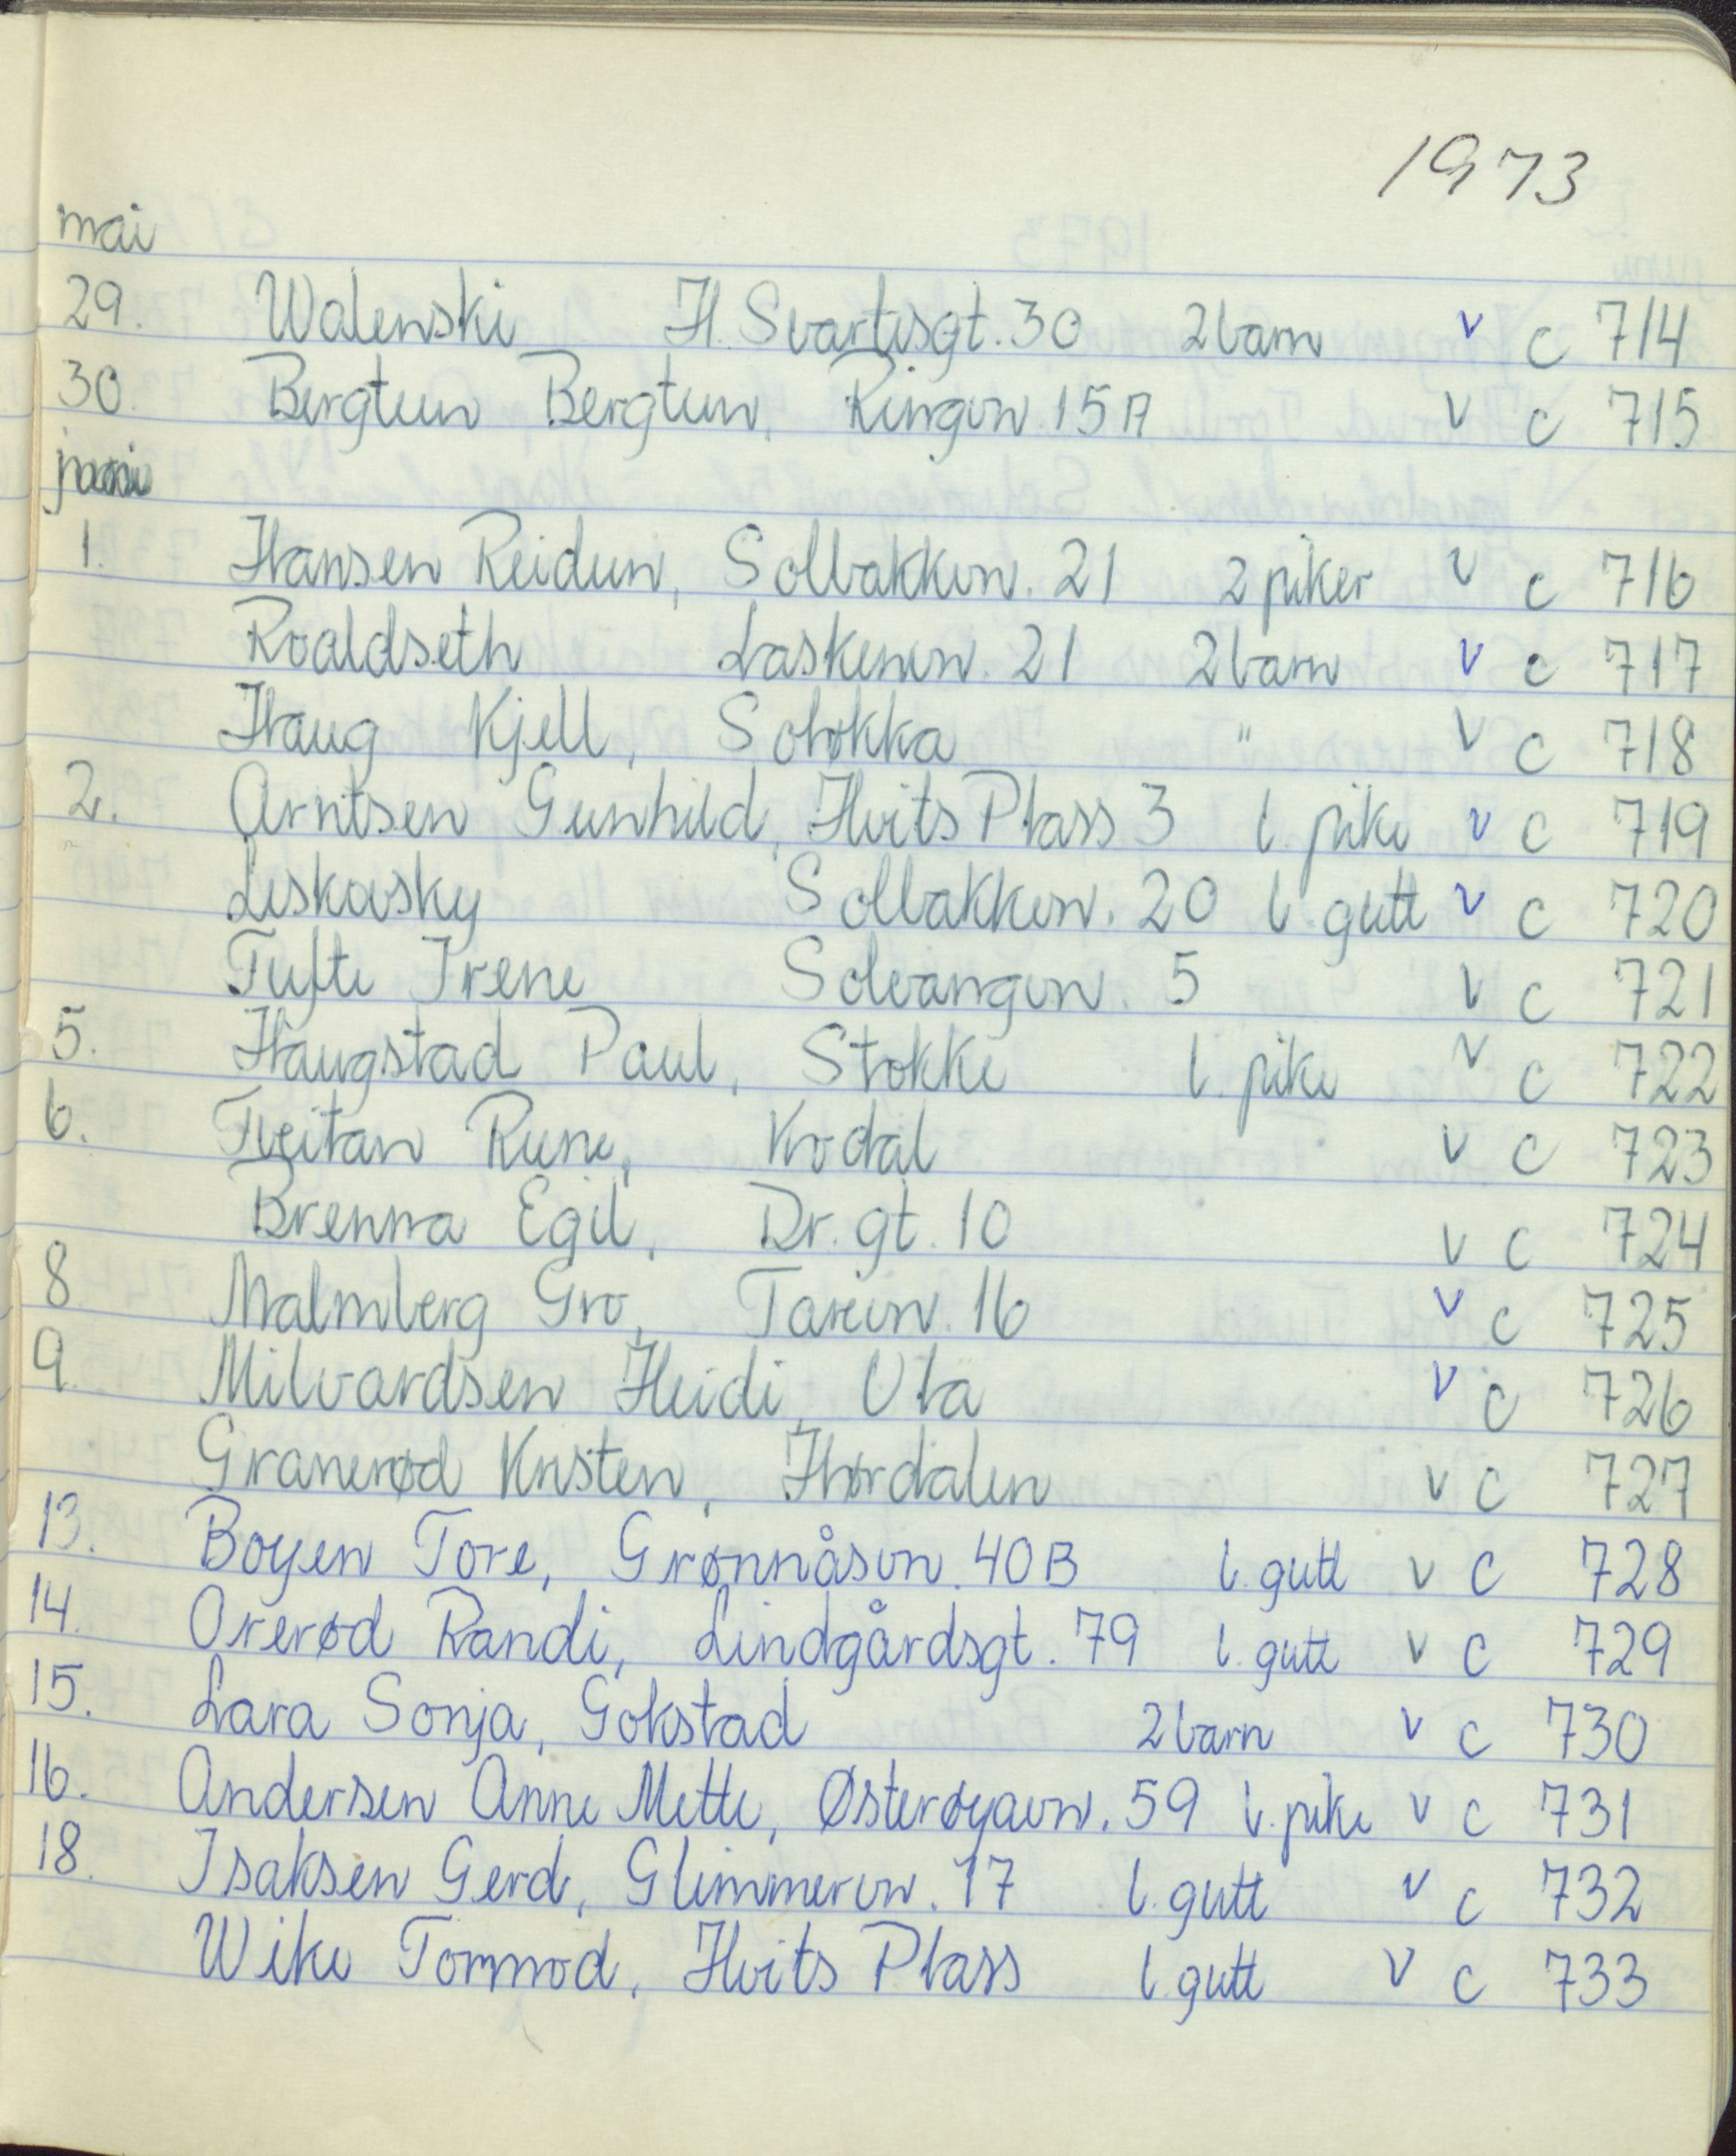 1973
mai
29. Walenski H. Svartisgt. 30 2 barn v c 714
30. Bergtun Bergtun, Ringvn. 15A v c 715
juni
1. Hansen Reidun, Solbakkvn. 21 2 piker v c 716
Roaldseth Laskenvn. 21 2 barn v c 717
Haug Kjell, Solløkka " v c 718
2. Arntsen Gunhild, Hvits Plass 3 l. pike v c 719
Leskovsky Solbakkvn. 20 l. gutt v c 720
Tufte Irene Solvangvn. 5 v c 721
5. Haugstad Paul, Stokke l. pike v c 722
6. Tveitan Rune, Kodal v c 723
Brenna Egil, Dr. gt. 10 v c 724
8 Malmberg Gro, Tarevn. 16 v c 725
9. Milvardsen Heidi, Ula v c 726
Granerød Kristen, Hørdalen v c 727
13. Boyen Tore, Grønnåsvn. 40B l. gutt v c 728
14. Orerød Randi, Lindgårdsgt. 79 l. gutt v c 729
15. Lara Sonja, Gokstad 2 barn v c 730
16. Andersen Anne Mette, Østerøyavn. 59 l. pike v c 731
18. Isaksen Gerd, Glimmervn. 17 l. gutt v c 732
Wike Tormod, Hvits Plass l. gutt v c 733